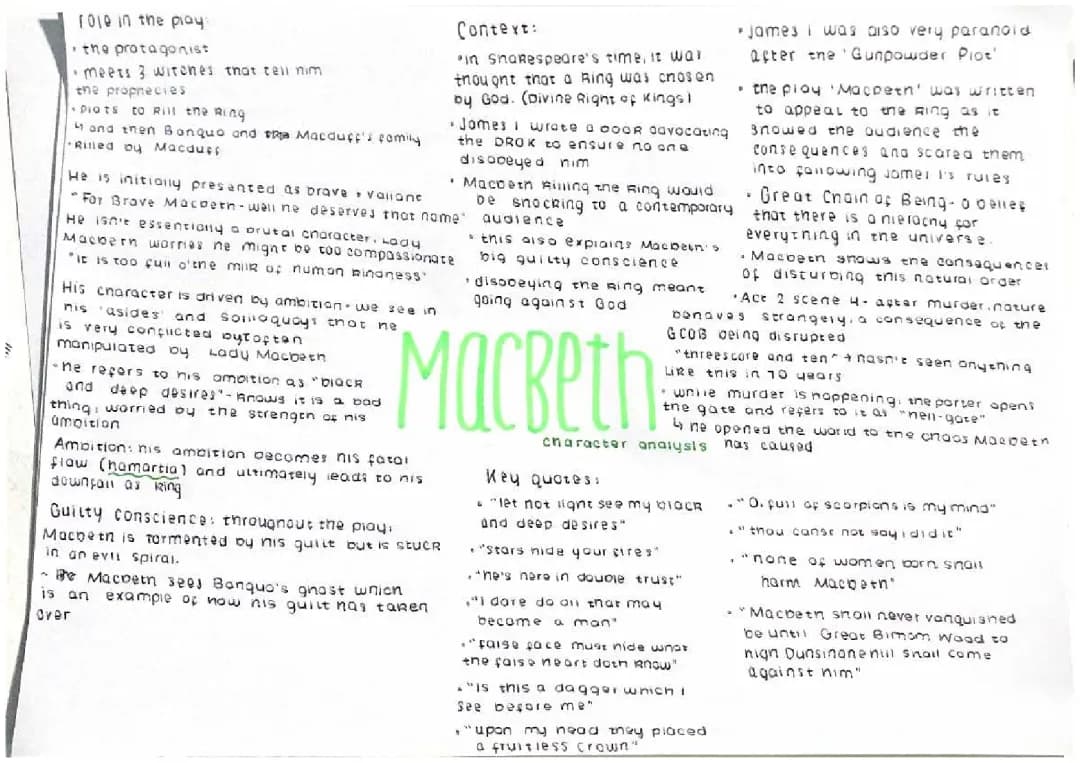 role in the play:
• the protagonist
• meets 3 witches that tell him
the prophecies
• plots to kill the king
↳ and then Banquo and Macduff's family
• killed by Macduff
He is initially presented as brave + valiant
"For Brave Macbeth - well he deserves that name"
He isn't essentially a brutal character. Lady
Macbeth worries he might be too compassionate
"it is too full o'the milk of human kindness"
His character is driven by ambition - we see in
his 'asides' and soliloquoys that he
is very conflicted by + often
manipulated by Lady Macbeth
~ he refers to his ambition as "black
and deep desires" - knows it is a bad
thing, worried by the strength of his
ambition
Ambition: his ambition becomes his fatal
flaw (hamartia) and ultimately leads to his
downfall as king
Guilty conscience: throughout the play,
Macbeth is tormented by his guilt but is stuck
in an evil spiral.
~ Macbeth sees Banquo's ghost which
is an example of how his guilt has taken
over
Context:
• In Shakespeare's time, it was
thought that a king was chosen
by God. (Divine Right of Kings)
• James I wrote a book advocating
the DROK to ensure no one
disobeyed him
• Macbeth killing the king would
be shocking to a contemporary
audience
• this also explains Macbeth's
big guilty conscience
• disobeying the king meant
going against God
• James I was also very paranoid
after the 'Gunpowder Plot'
• the play 'Macbeth' was written
to appeal to the king as it
showed the audience the
consequences and scared them
into following James I's rules
• Great Chain of Being - a belief
that there is a hierachy for
everything in the universe.
• Macbeth shows the consequences
of disturbing this natural order
• Act 2 scene 4 - after murder, nature
behaves strangely, a consequence of the
GCOB being disrupted
"threescore and ten" → hasn't seen anything
like this in 70 years
• while murder is happening, the porter opens
the gate and refers to it as "hell-gate"
↳ he opened the world to the chaos Macbeth
has caused
Macbeth
character analysis
Key quotes:
• "let not light see my black
and deep desires"
• "stars hide your fires"
• "he's here in double trust"
• "I dare do all that may
become a man"
• "false face must hide what
the false heart doth know"
• "Is this a dagger which I
see before me"
• "upon my head they placed
a fruitless crown"
• "O, full of scorpions is my mind"
• "thou canst not say i did it"
• "none of women born shall
harm Macbeth"
• "Macbeth shall never vanquished
be until Great Birnam Wood to
high Dunsinane hill shall come
against him"